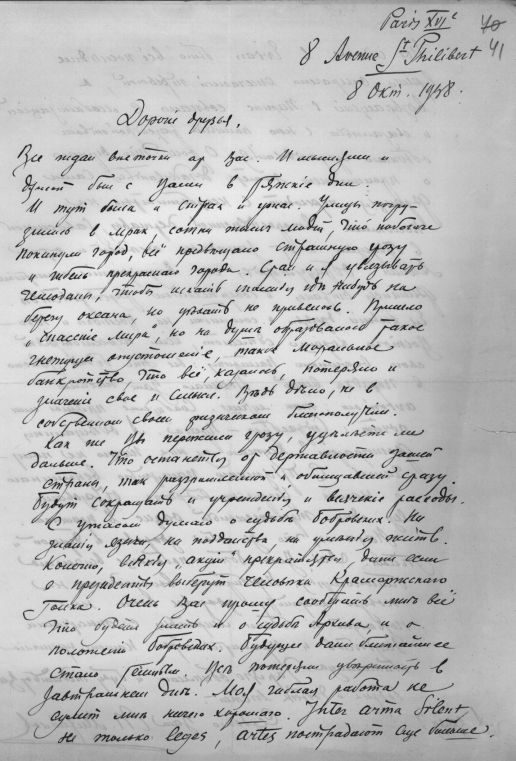 Paris XVIe
40
41
8 Avenue St Philibert
8 Окт. 1938.
Дорогіе друзья,
Все ждал весточки от Вас. И мыслями и
душой был с Вами в тяжкіе дни.
И тут были и страх и ужас. Улицы погру-
зились в мрак, сотни тысяч людей, что побогаче
покинули город, всё предвещало страшную грозу
и гибель прекраснаго города. Стал и я увязывать
чемоданы, чтобы искать спасенія где нибудь на
берегу океана, но уезжать не пришлось. Пришло
"спасеніе мира", но на душе образовалось такое
гнетущее опустошеніе, такое моральное
банкротство, что всё казалось, потеряло и
значеніе свое и смысл. Ведь дело, не в
собственном своем физическом благополучіи.
Как же Вы пережили грозу, уцелеете ли
дальше. Что останется от державности Вашей
страны, так разгромленной и обнищавшей сразу.
Будут сокращать и учрежденія и всяческіе расходы.
С ужасом думаю о судьбе Бобровских. Ни
знанія языка, ни подданства, ни уменія жить.
Конечно, всякія "акціи" прекратятся, даже если
в президенты выберут человека Крамаржскаго
толка. Очень Вас прошу сообщать мне всё
что будете знать и о судьбе Архива и о
положеніи Бобровских. Будущее даже ближайшее
стало темным. Все потеряли уверенность в
завтрашнем дне. Моя работа не
сулит мне ничего хорошаго. Inter arma silent
не только leges, artes пострадают еще больше.